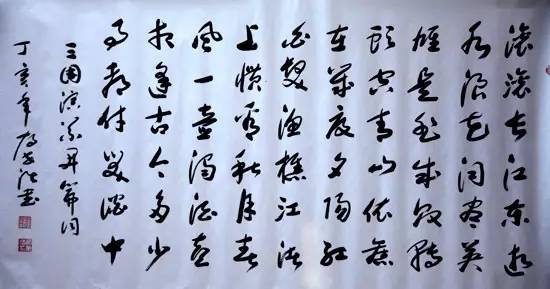 滚滚长江东逝
水浪花淘尽英
雄是非成败转
头空青山依旧
在几度夕阳红
白发渔樵江渚
上惯看秋月春
风一壶浊酒喜
相逢古今多少
事都付笑谈中
三国演义开篇词
丁亥年 书